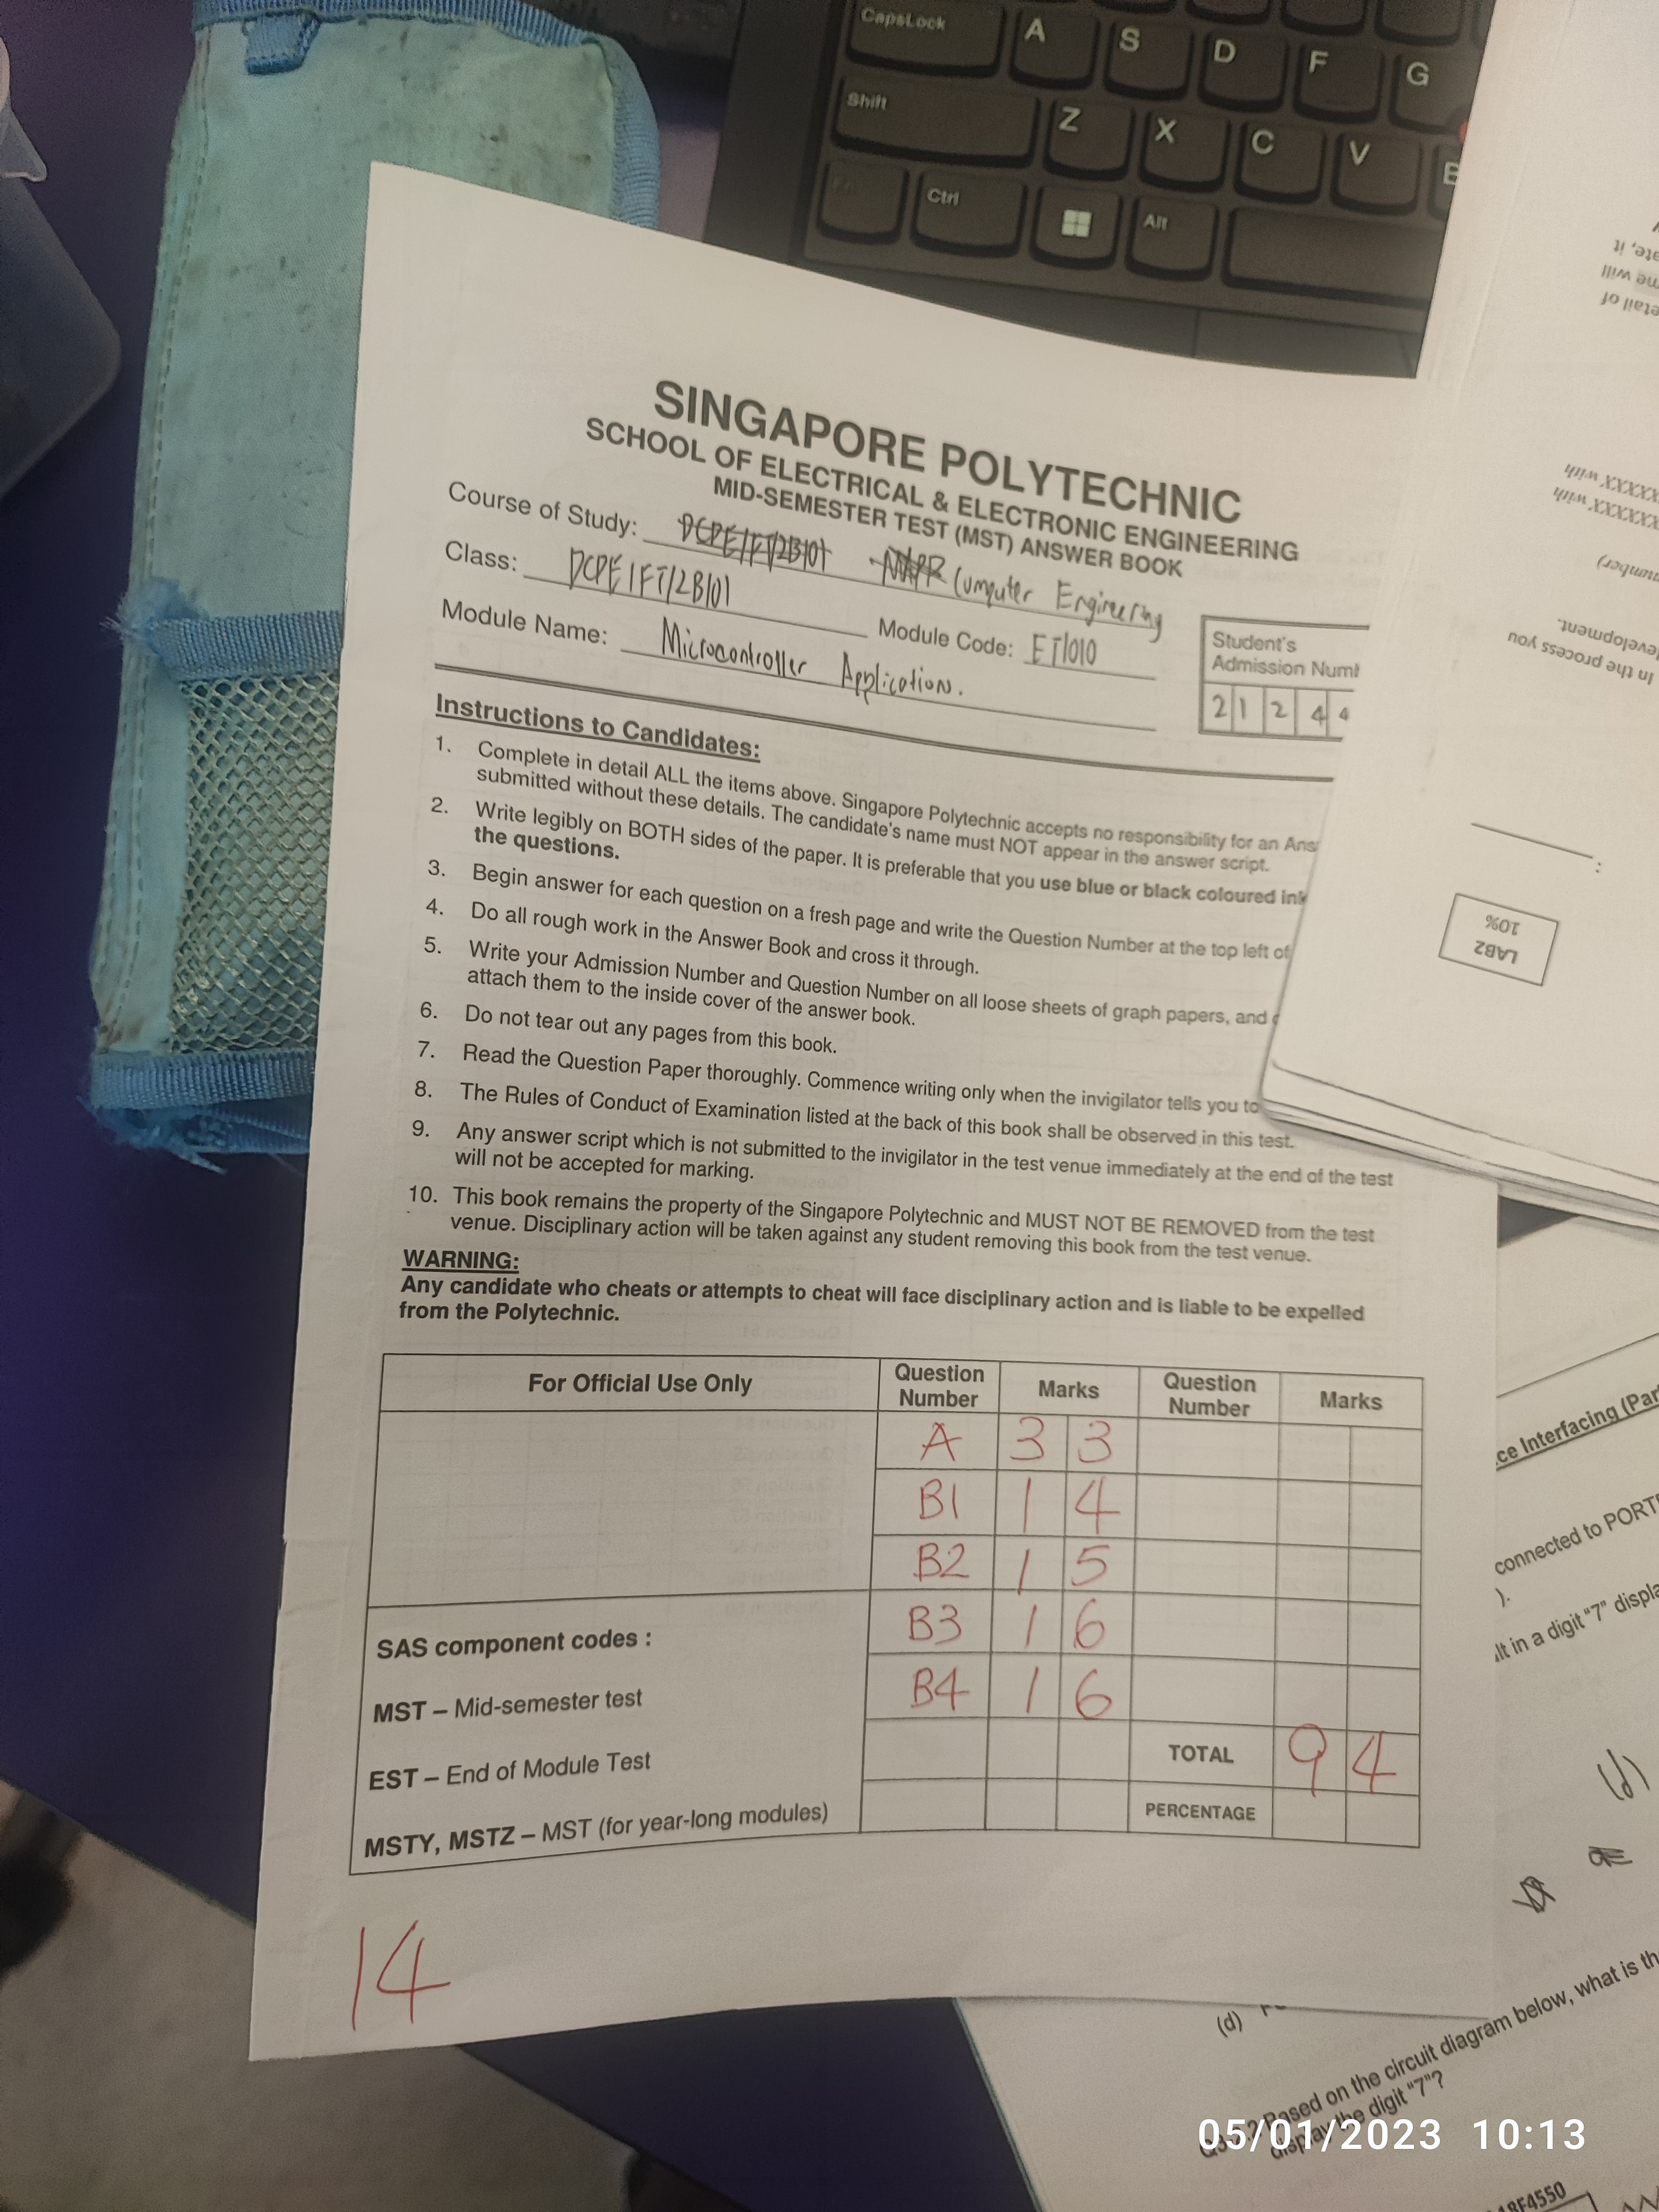 CapsLock
A
S
D
F
G
Shift
Z
X
C
V
Ctrl
Alt
SINGAPORE POLYTECHNIC
SCHOOL OF ELECTRICAL & ELECTRONIC ENGINEERING
MID-SEMESTER TEST (MST) ANSWER BOOK
Course of Study: DCPE/FT/2B/01 Computer Engineering
Class: DCPE/FT/2B/01 Module Code: ET1010
Module Name: Microcontroller Application.
Student's
Admission Numb
2 1 2 4 4
Instructions to Candidates:
1. Complete in detail ALL the items above. Singapore Polytechnic accepts no responsibility for an Ans
submitted without these details. The candidate's name must NOT appear in the answer script.
2. Write legibly on BOTH sides of the paper. It is preferable that you use blue or black coloured ink
the questions.
3. Begin answer for each question on a fresh page and write the Question Number at the top left of
4. Do all rough work in the Answer Book and cross it through.
5. Write your Admission Number and Question Number on all loose sheets of graph papers, and
attach them to the inside cover of the answer book.
6. Do not tear out any pages from this book.
7. Read the Question Paper thoroughly. Commence writing only when the invigilator tells you to
8. The Rules of Conduct of Examination listed at the back of this book shall be observed in this test.
9. Any answer script which is not submitted to the invigilator in the test venue immediately at the end of the test
will not be accepted for marking.
10. This book remains the property of the Singapore Polytechnic and MUST NOT BE REMOVED from the test
venue. Disciplinary action will be taken against any student removing this book from the test venue.
WARNING:
Any candidate who cheats or attempts to cheat will face disciplinary action and is liable to be expelled
from the Polytechnic.
For Official Use Only Question Number Marks Question Number Marks
A 3 3
B1 1 4
B2 1 5
B3 1 6
B4 1 6
SAS component codes :
MST – Mid-semester test
EST – End of Module Test
MSTY, MSTZ – MST (for year-long modules)
TOTAL 9 4
PERCENTAGE
14
etail of
me will
ate, it
XXXXXX with
XXXXXX with
number)
In the process you
development.
LAB2
10%
ce Interfacing (Par
connected to PORT
).
lt in a digit "7" displa
(d)
(d)
Based on the circuit diagram below, what is th
display the digit "7"?
18F4550
05/01/2023 10:13